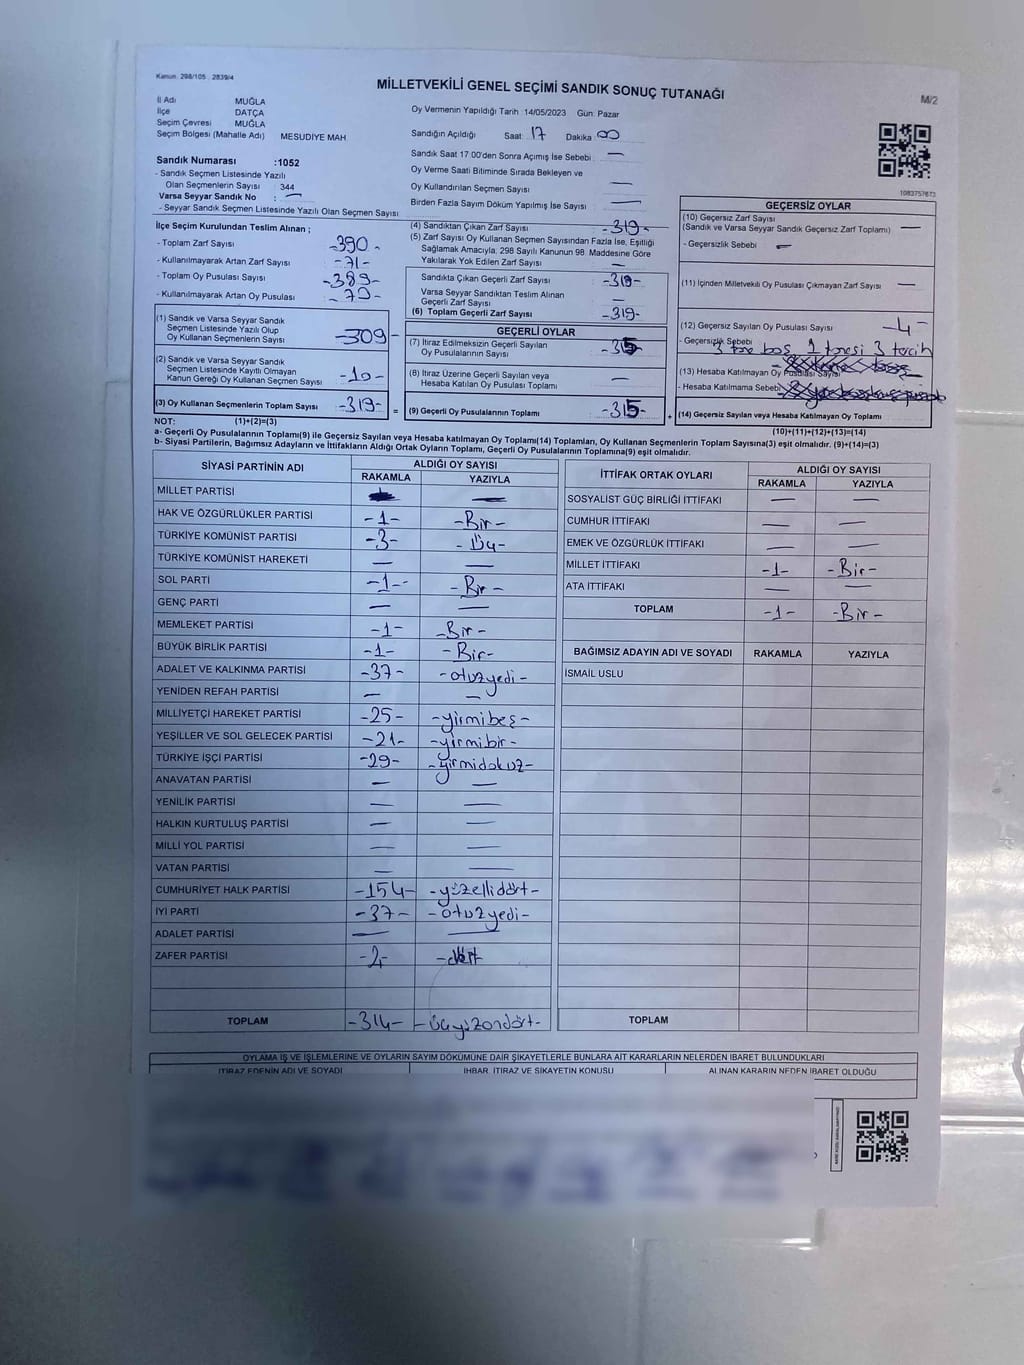 Kanun: 298/105 , 2839/4
MİLLETVEKİLİ GENEL SEÇİMİ SANDIK SONUÇ TUTANAĞI
M/2
İl Adı MUĞLA
İlçe DATÇA
Seçim Çevresi MUĞLA
Seçim Bölgesi (Mahalle Adı) MESUDİYE MAH.
Oy Vermenin Yapıldığı Tarih 14/05/2023 Gün: Pazar
Sandığın Açıldığı Saat: 17 Dakika: 00
Sandık Saat 17:00'den Sonra Açımış İse Sebebi : —
Oy Verme Saati Bitiminde Sırada Bekleyen ve
Oy Kullandırılan Seçmen Sayısı —
Birden Fazla Sayım Döküm Yapılmış İse Sayısı —
1083757673
Sandık Numarası :1052
- Sandık Seçmen Listesinde Yazılı
Olan Seçmenlerin Sayısı : 344
Varsa Seyyar Sandık No : —
- Seyyar Sandık Seçmen Listesinde Yazılı Olan Seçmen Sayısı:
İlçe Seçim Kurulundan Teslim Alınan ;
- Toplam Zarf Sayısı -390-
- Kullanılmayarak Artan Zarf Sayısı -71-
- Toplam Oy Pusulası Sayısı -389-
- Kullanılmayarak Artan Oy Pusulası -70-
(1) Sandık ve Varsa Seyyar Sandık
Seçmen Listesinde Yazılı Olup
Oy Kullanan Seçmenlerin Sayısı -309-
(2) Sandık ve Varsa Seyyar Sandık
Seçmen Listesinde Kayıtlı Olmayan
Kanun Gereği Oy Kullanan Seçmen Sayısı -10-
(3) Oy Kullanan Seçmenlerin Toplam Sayısı -319-
(4) Sandıktan Çıkan Zarf Sayısı -319-
(5) Zarf Sayısı Oy Kullanan Seçmen Sayısından Fazla İse, Eşitliği
Sağlamak Amacıyla, 298 Sayılı Kanunun 98. Maddesine Göre
Yakılarak Yok Edilen Zarf Sayısı —
Sandıkta Çıkan Geçerli Zarf Sayısı -319-
Varsa Seyyar Sandıktan Teslim Alınan
Geçerli Zarf Sayısı —
(6) Toplam Geçerli Zarf Sayısı -319-
GEÇERLİ OYLAR
(7) İtiraz Edilmeksizin Geçerli Sayılan
Oy Pusulalarının Sayısı -315-
(8) İtiraz Üzerine Geçerli Sayılan veya
Hesaba Katılan Oy Pusulası Toplamı —
= (9) Geçerli Oy Pusulalarının Toplamı -315- +
GEÇERSİZ OYLAR
(10) Geçersiz Zarf Sayısı
(Sandık ve Varsa Seyyar Sandık Geçersiz Zarf Toplamı) —
- Geçersizlik Sebebi —
(11) İçinden Milletvekili Oy Pusulası Çıkmayan Zarf Sayısı —
(12) Geçersiz Sayılan Oy Pusulası Sayısı -4-
- Geçersizlik Sebebi 3 tane boş 1 tanesi 3 tercih
(13) Hesaba Katılmayan Oy Pusulası Sayısı
- Hesaba Katılmama Sebebi
(14) Geçersiz Sayılan veya Hesaba Katılmayan Oy Toplamı
NOT: (1)+(2)=(3) (10)+(11)+(12)+(13)=(14)
a- Geçerli Oy Pusulalarının Toplamı(9) ile Geçersiz Sayılan veya Hesaba katılmayan Oy Toplamı(14) Toplamları, Oy Kullanan Seçmenlerin Toplam Sayısına(3) eşit olmalıdır. (9)+(14)=(3)
b- Siyasi Partilerin, Bağımsız Adayların ve İttifakların Aldığı Ortak Oyların Toplamı, Geçerli Oy Pusulalarının Toplamına(9) eşit olmalıdır.
SİYASİ PARTİNİN ADI ALDIĞI OY SAYISI
RAKAMLA YAZIYLA
MİLLET PARTİSİ —
HAK VE ÖZGÜRLÜKLER PARTİSİ -1- -Bir-
TÜRKİYE KOMÜNİST PARTİSİ -3- -Üç-
TÜRKİYE KOMÜNİST HAREKETİ — —
SOL PARTİ -1- -Bir-
GENÇ PARTİ — —
MEMLEKET PARTİSİ -1- -Bir-
BÜYÜK BİRLİK PARTİSİ -1- -Bir-
ADALET VE KALKINMA PARTİSİ -37- -otuzyedi-
YENİDEN REFAH PARTİSİ — —
MİLLİYETÇİ HAREKET PARTİSİ -25- -yirmibeş-
YEŞİLLER VE SOL GELECEK PARTİSİ -21- -yirmibir-
TÜRKİYE İŞÇİ PARTİSİ -29- -yirmidokuz-
ANAVATAN PARTİSİ — —
YENİLİK PARTİSİ — —
HALKIN KURTULUŞ PARTİSİ — —
MİLLİ YOL PARTİSİ — —
VATAN PARTİSİ — —
CUMHURİYET HALK PARTİSİ -154- -yüzellidört-
İYİ PARTİ -37- -otuzyedi-
ADALET PARTİSİ — —
ZAFER PARTİSİ -dört
TOPLAM -314- -üçyüzondört-
İTTİFAK ORTAK OYLARI ALDIĞI OY SAYISI
RAKAMLA YAZIYLA
SOSYALİST GÜÇ BİRLİĞİ İTTİFAKI — —
CUMHUR İTTİFAKI — —
EMEK VE ÖZGÜRLÜK İTTİFAKI — —
MİLLET İTTİFAKI -1- -Bir-
ATA İTTİFAKI — —
TOPLAM -1- -Bir-
BAĞIMSIZ ADAYIN ADI VE SOYADI RAKAMLA YAZIYLA
İSMAİL USLU
TOPLAM
OYLAMA İŞ VE İŞLEMLERİNE VE OYLARIN SAYIM DÖKÜMÜNE DAİR ŞİKAYETLERLE BUNLARA AİT KARARLARIN NELERDEN İBARET BULUNDUKLARI
İTİRAZ EDENİN ADI VE SOYADI İHBAR, İTİRAZ VE ŞİKAYETİN KONUSU ALINAN KARARIN NEDEN İBARET OLDUĞU